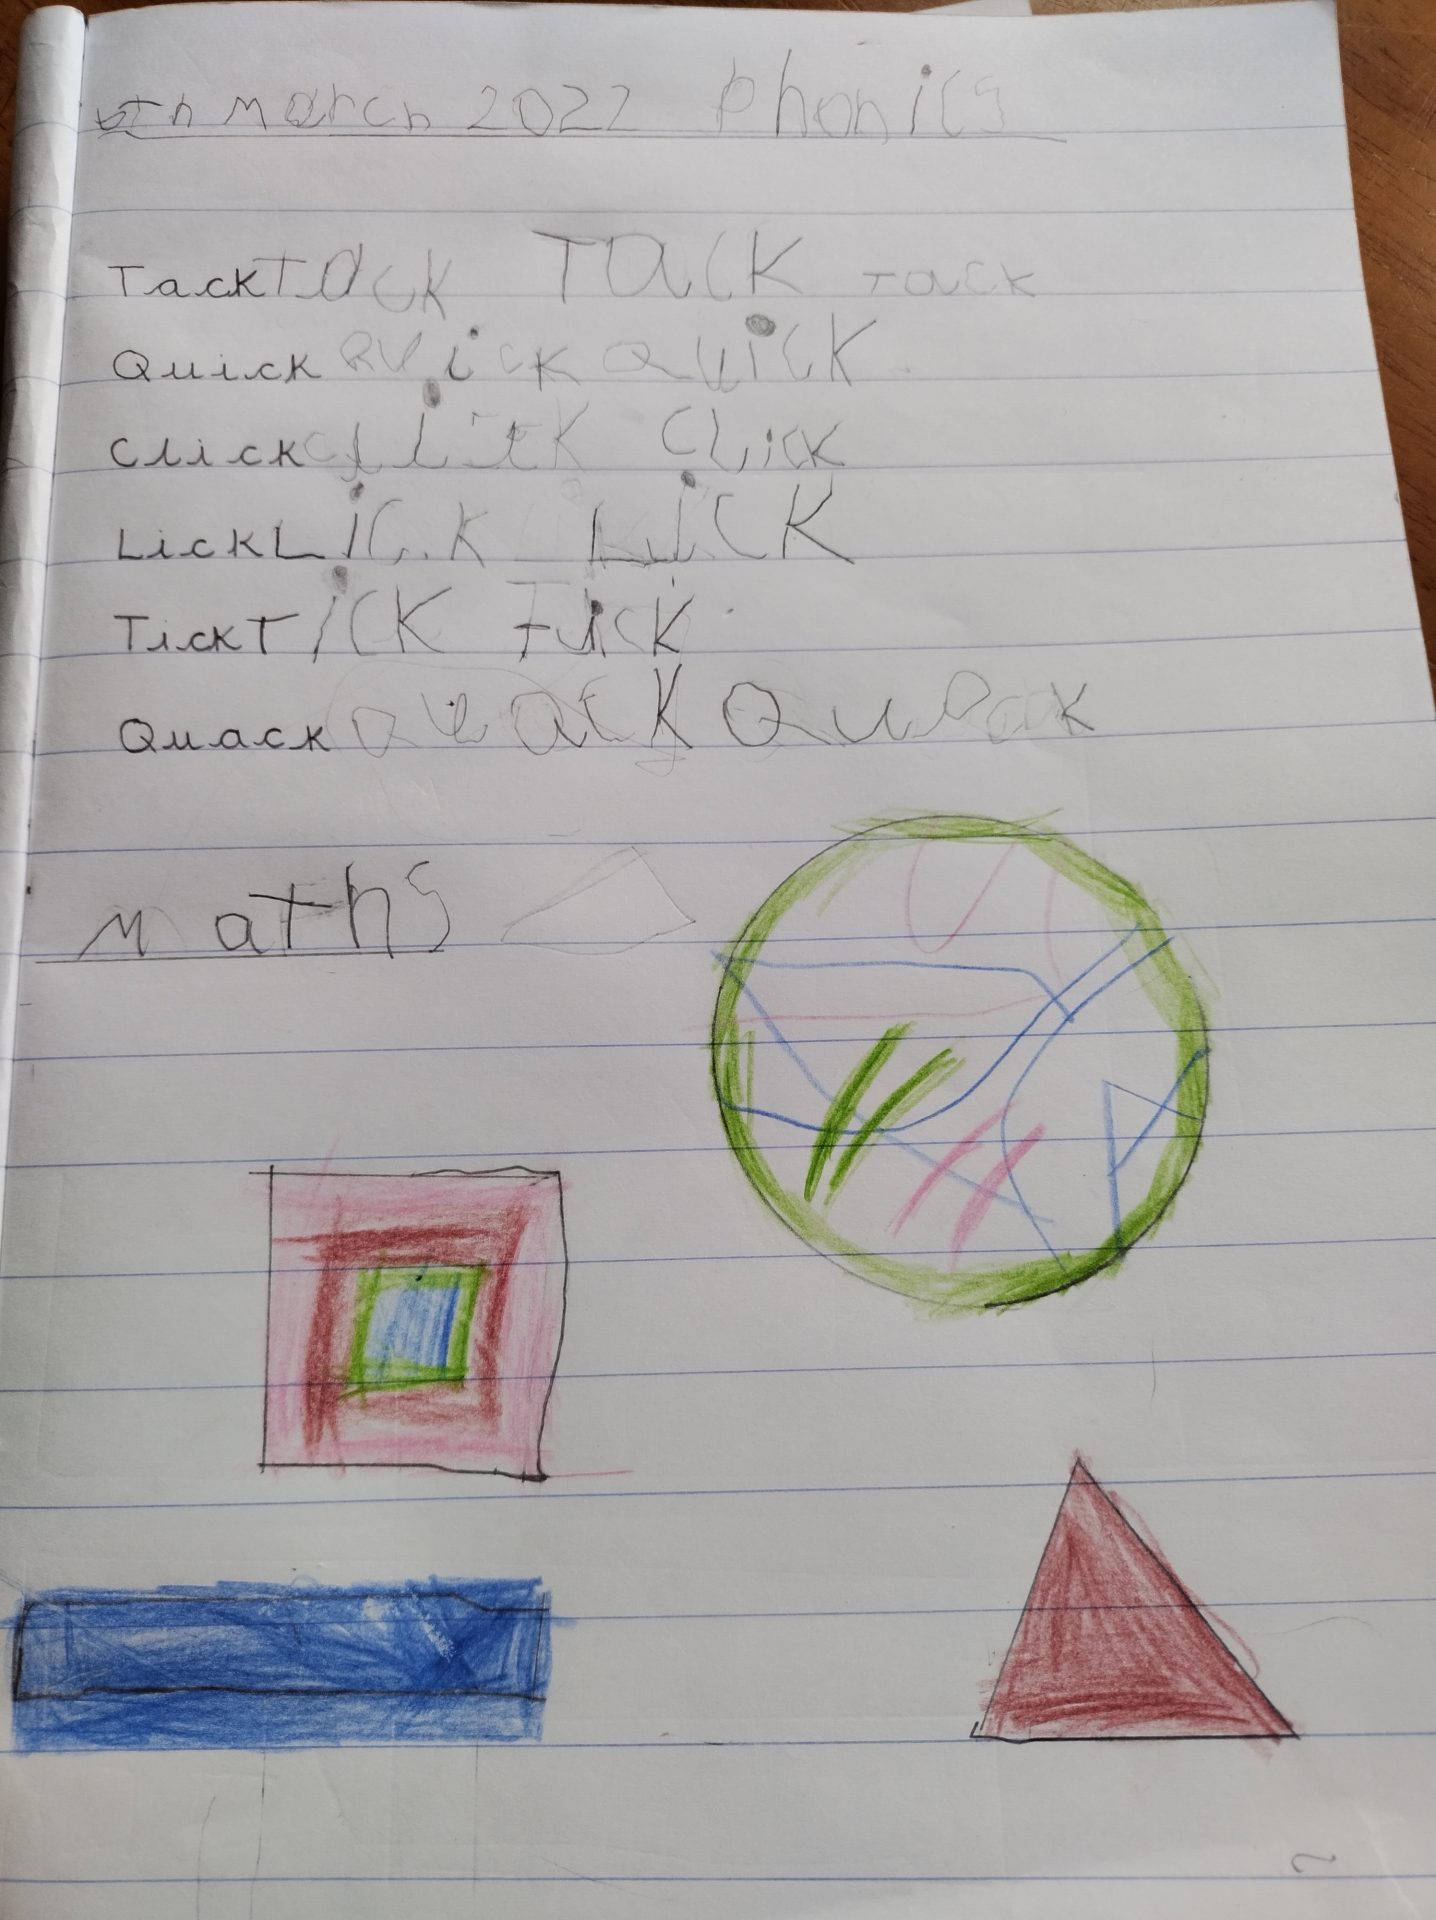 March 2022 Phonics
Tack Tack Tack Tack
Quick Quick Quick
Click Click Click
Lick Lick Lick
Tick Tick Tick
Quack Quack Quack
maths